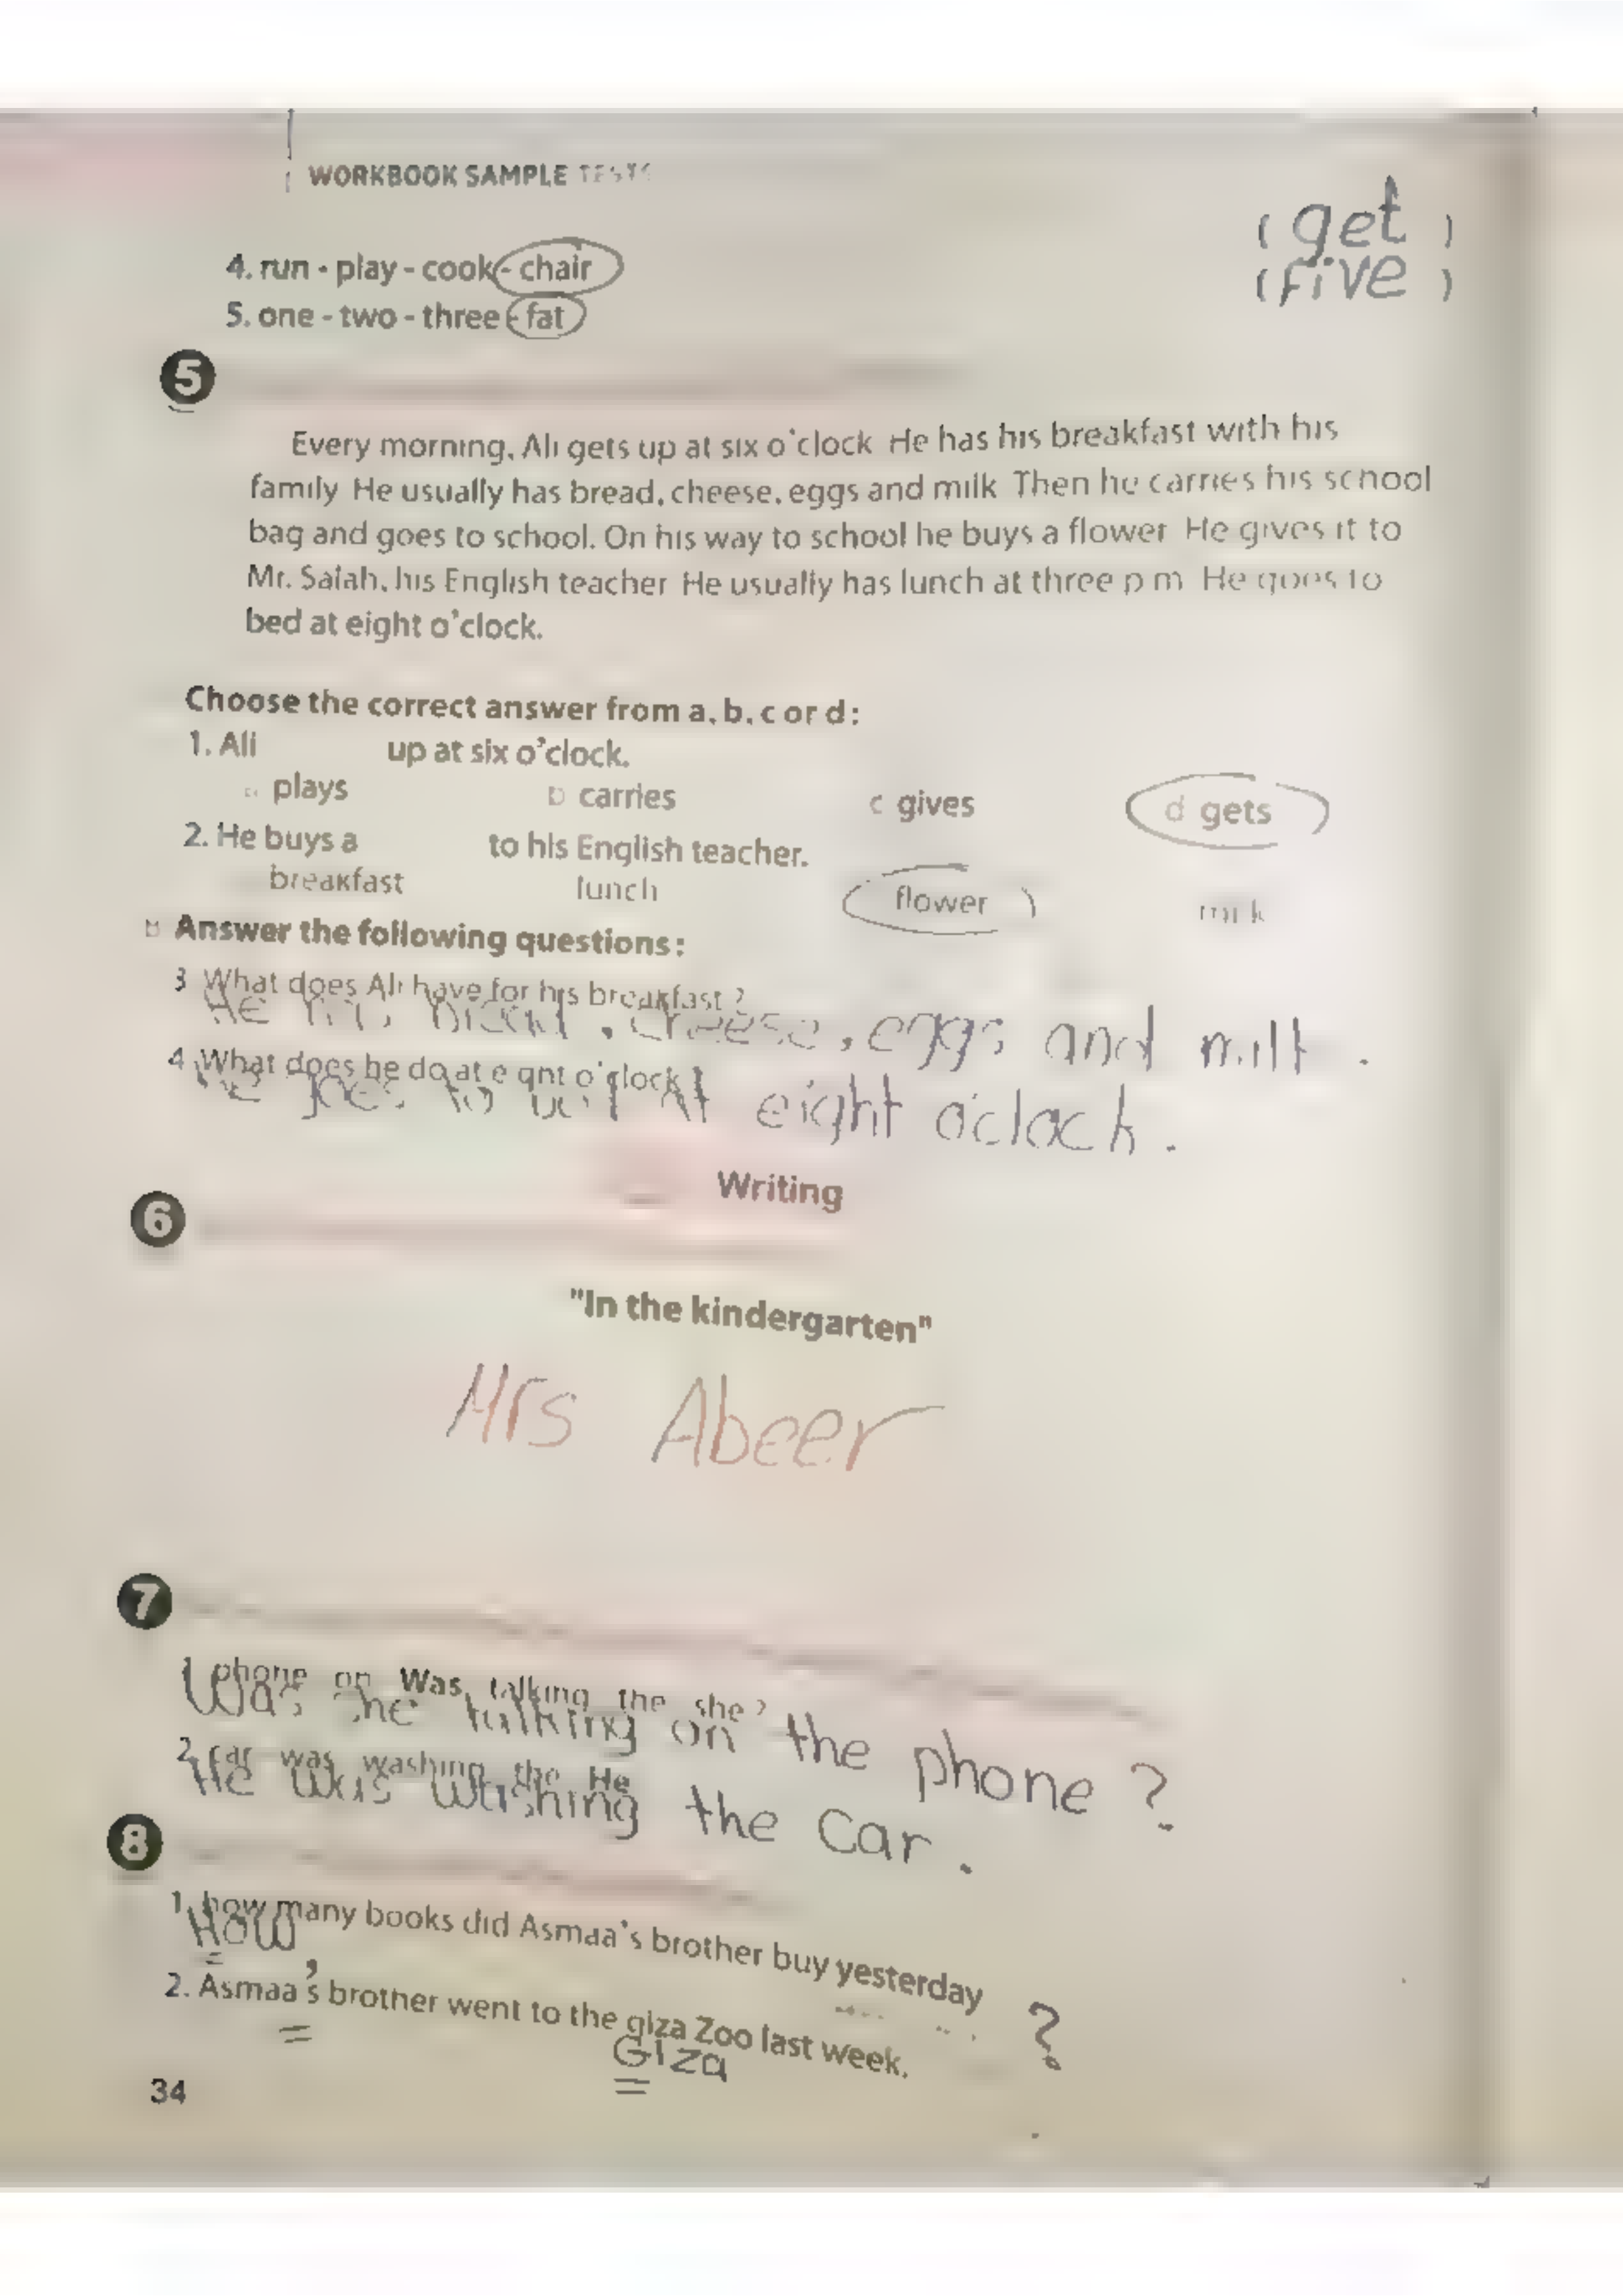 WORKBOOK SAMPLE TESTS
4. run - play - cook - chair ( get )
5. one - two - three - fat ( five )
5
Every morning, Ali gets up at six o'clock He has his breakfast with his
family He usually has bread, cheese, eggs and milk Then he carries his school
bag and goes to school. On his way to school he buys a flower He gives it to
Mr. Salah, his English teacher He usually has lunch at three p m He goes to
bed at eight o'clock.
Choose the correct answer from a, b, c or d :
1. Ali up at six o'clock.
a plays b carries c gives d gets
2. He buys a to his English teacher.
breakfast lunch flower milk
B Answer the following questions :
3 What does Ali have for his breakfast ?
He has bread , cheese , eggs and milk .
4 What does he do at eight o'clock
He goes to bed at eight o'clock .
Writing
6
"In the kindergarten"
Mrs Abeer
7
1 phone on Was talking the she ?
Was she talking on the phone ?
2 car was washing the He
He was washing the car .
8
1. how many books did Asmaa's brother buy yesterday ?
How
2. Asmaa's brother went to the giza Zoo last week.
Giza
34